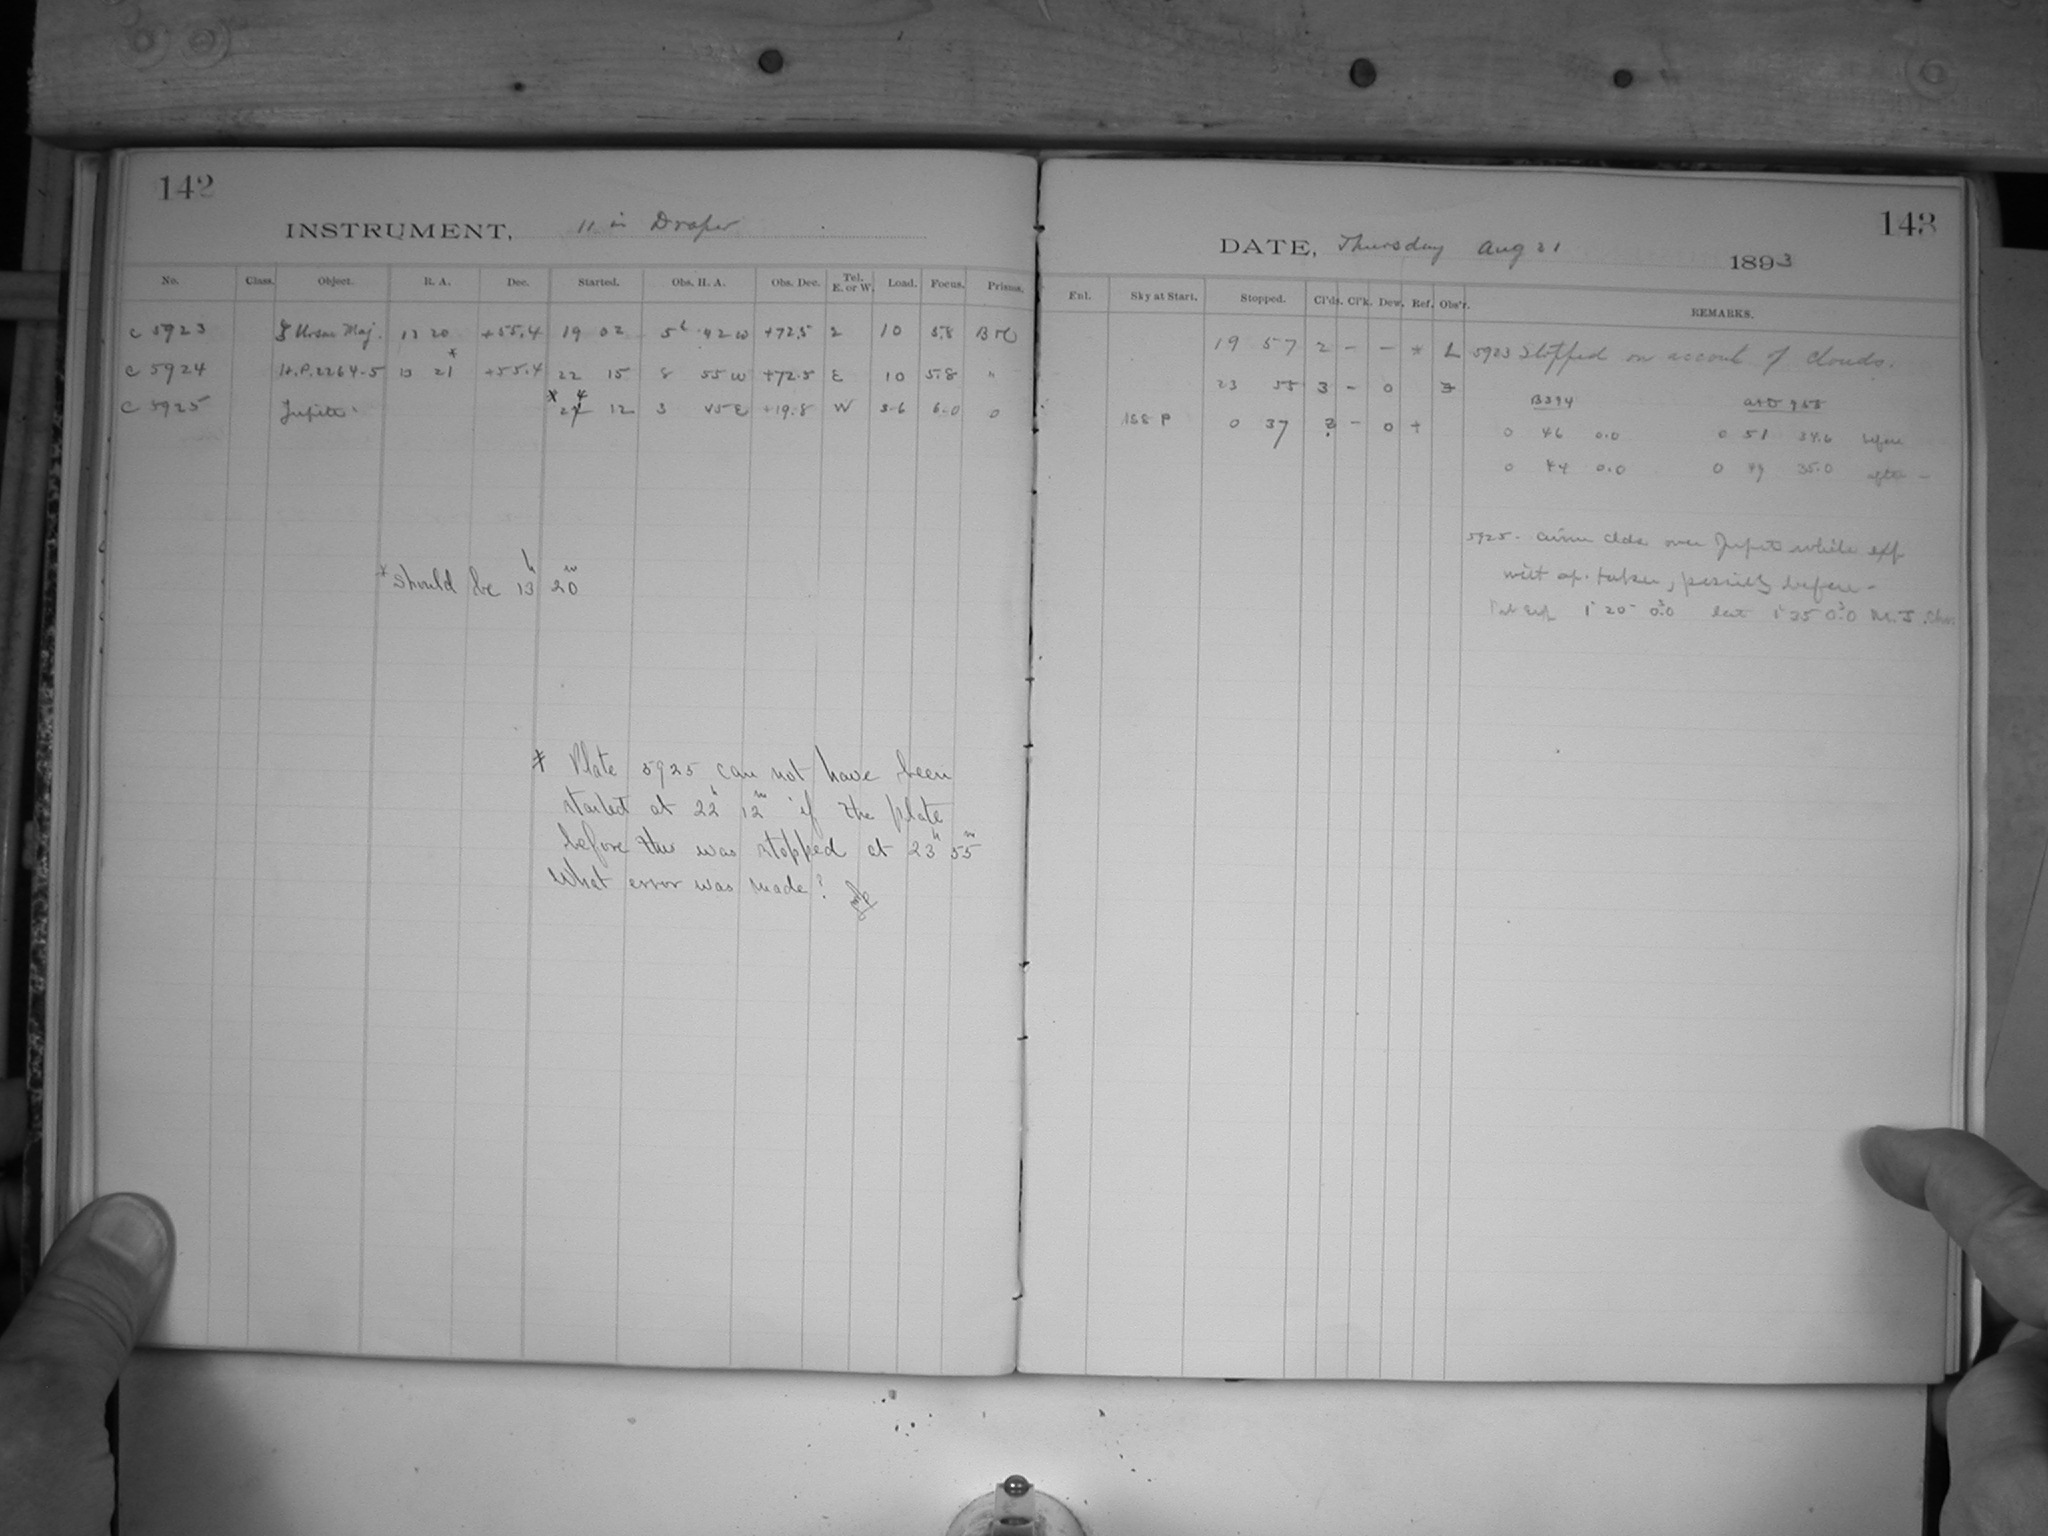 142
INSTRUMENT, 11 in Draper
No. Class. Object. R. A. Dec. Started. Obs. H. A. Obs. Dec. Tel. E. or W. Load. Focus. Prisms.
c 5923 ζ Ursae Maj. 13 20 +55.4 19 02 5h 42 w +72.5 2 10 5.8
c 5924 H.P. 2264-5 13 21* +55.4 22 15 8 55 w +72.5 E 10 5.8 "
c 5925 Jupiter * 24 12 3 45 E +19.8 W 3.6 6.0 0
*should be 13h 20m
* Plate 5925 can not have been
started at 22h 12m if the plate
before this was stopped at 23h 55m
What error was made?
143
DATE, Thursday Aug 31 1893
Enl. Sky at Start. Stopped. Cl'ds. Cl'k. Dew. Ref. Obs'r. REMARKS.
19 57 2 - - * L 5923 Stopped on account of clouds.
23 55 3 - 0
B394
158 P 0 37 3 - 0 +
0 46 0.0 0 51 34.6 before
0 44 0.0 0 49 35.0 after -
5925 - cirrus clds over Jupiter while exp